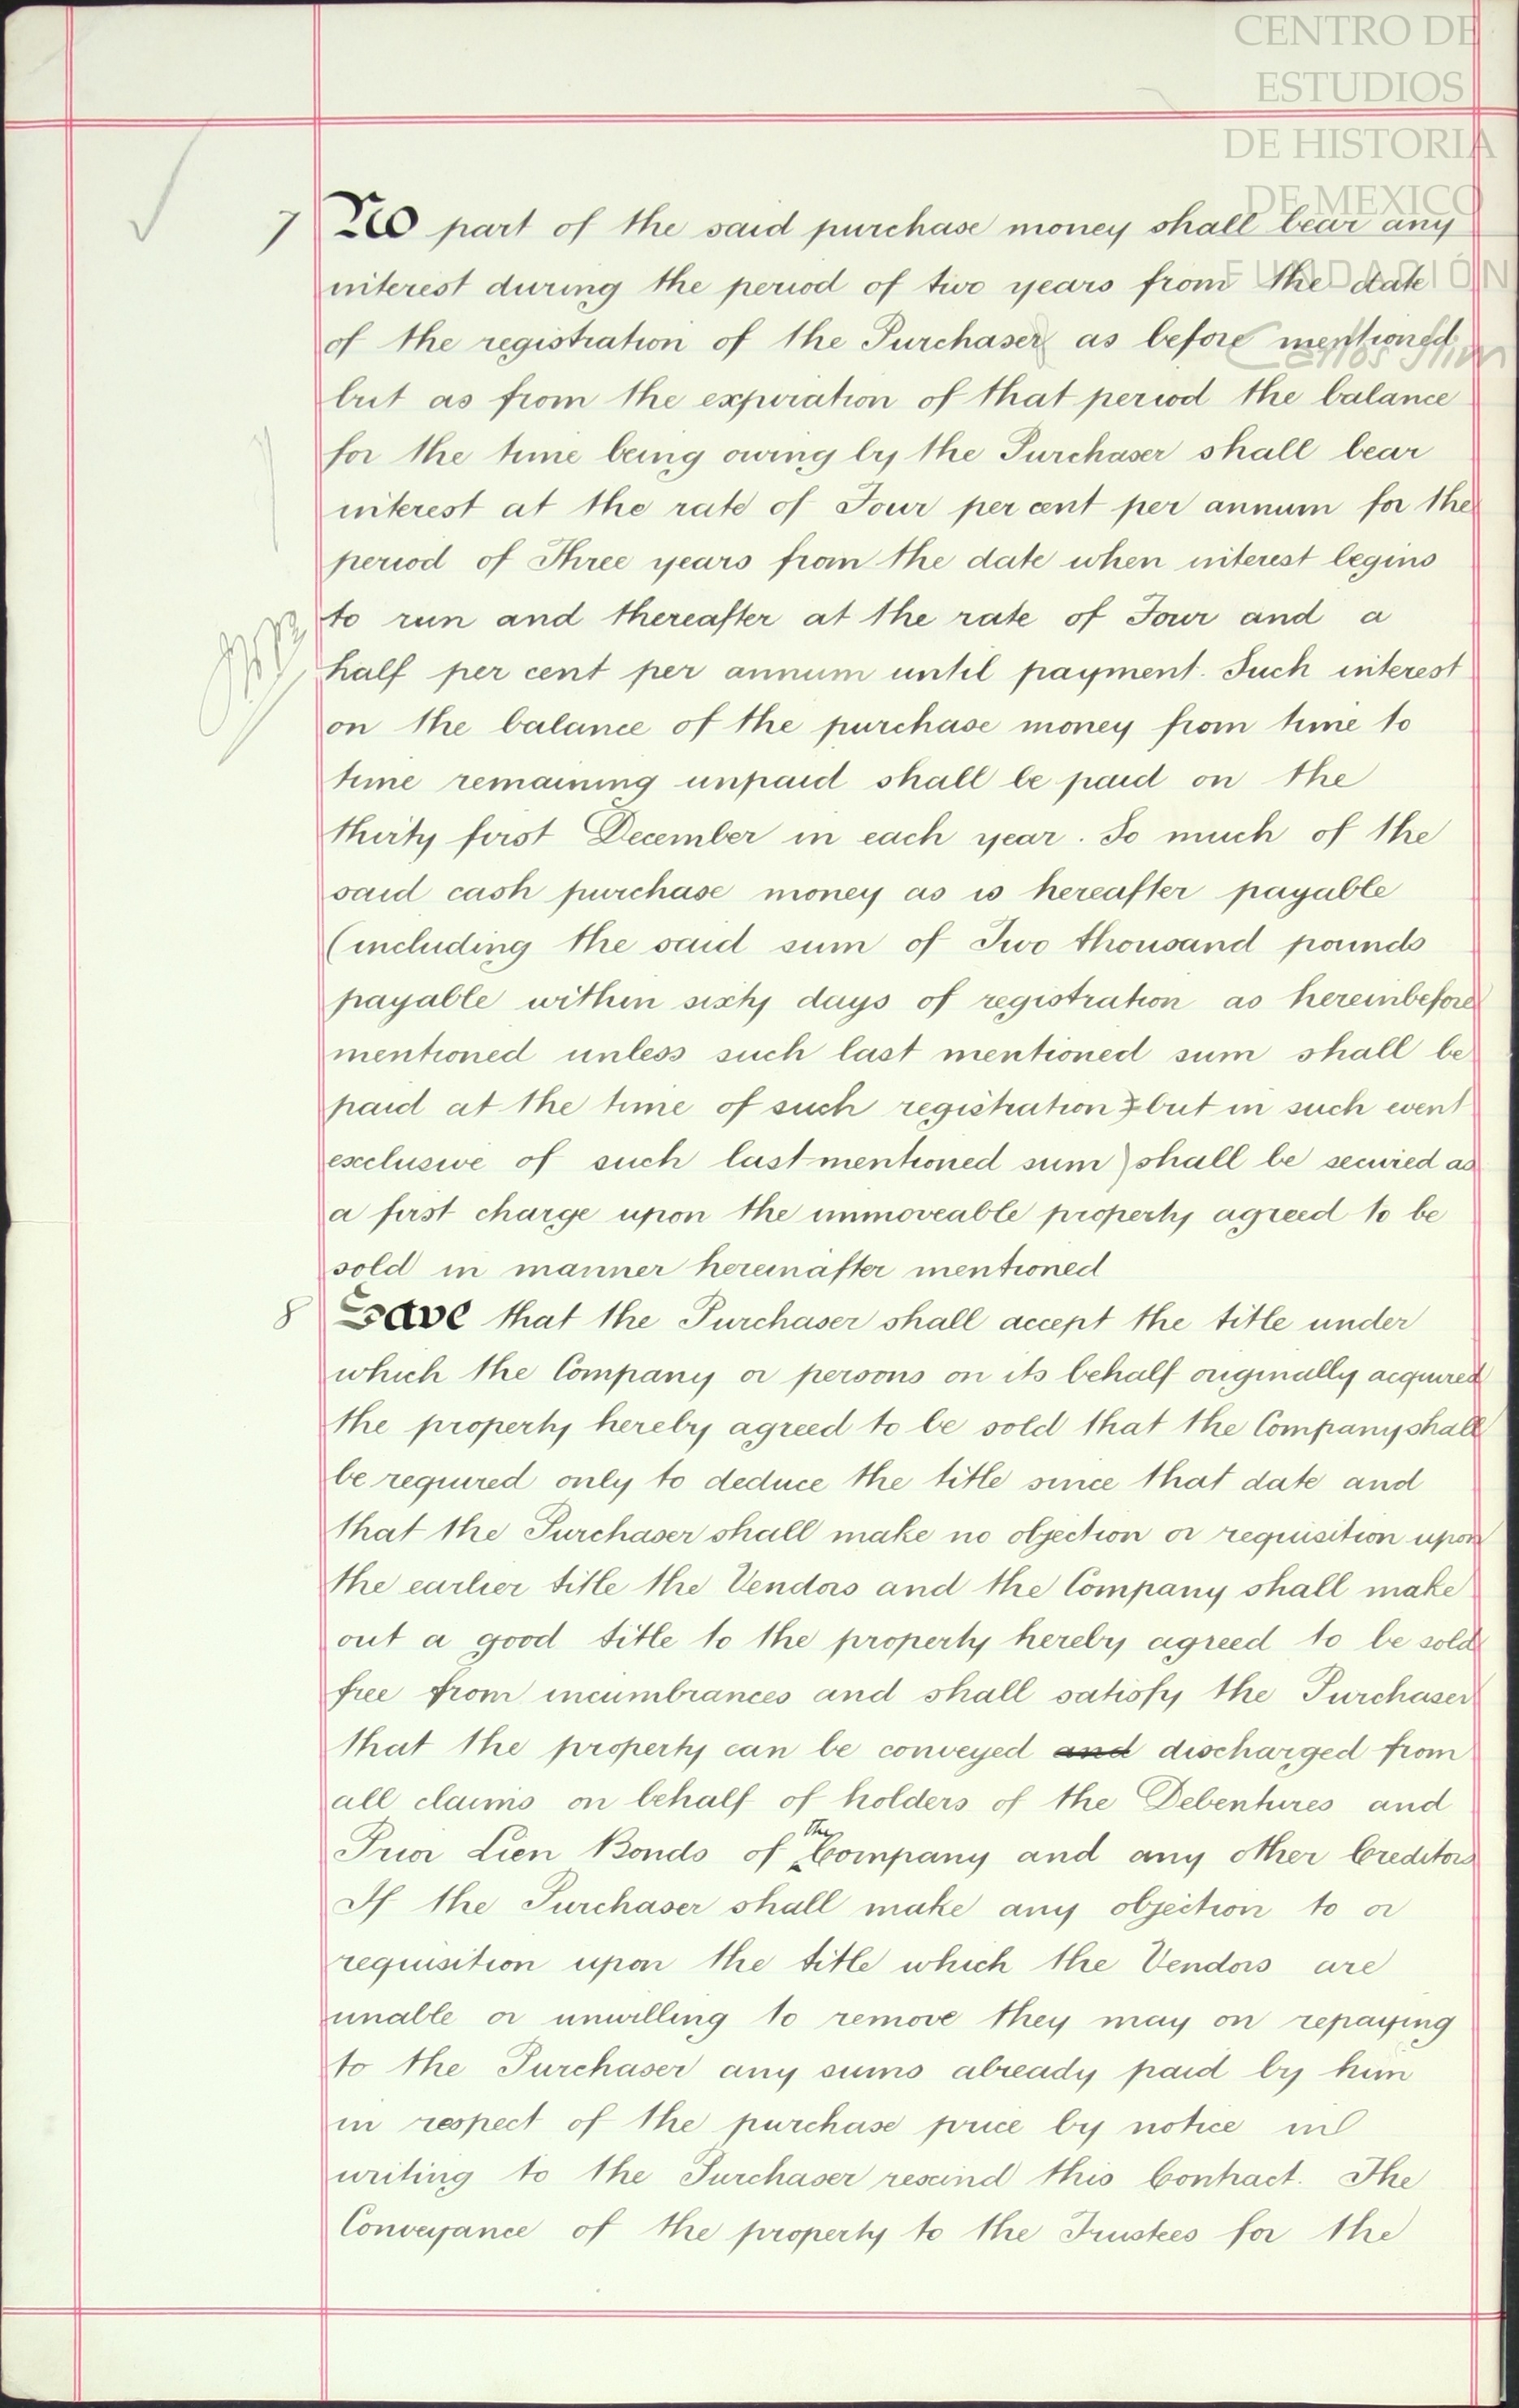 CENTRO DE
ESTUDIOS
DE HISTORIA
DE MEXICO
FUNDACIÓN
Carlos Slim
7 No part of the said purchase money shall bear any
interest during the period of two years from the date
of the registration of the Purchaser as before mentioned
but as from the expiration of that period the balance
for the time being owing by the Purchaser shall bear
interest at the rate of Four per cent per annum for the
period of Three years from the date when interest begins
to run and thereafter at the rate of Four and a
half per cent per annum until payment. Such interest
on the balance of the purchase money from time to
time remaining unpaid shall be paid on the
thirty first December in each year. So much of the
said cash purchase money as is hereafter payable
(including the said sum of Two thousand pounds
payable within sixty days of registration as hereinbefore
mentioned unless such last mentioned sum shall be
paid at the time of such registration but in such event
exclusive of such last mentioned sum) shall be secured as
a first charge upon the immoveable property agreed to be
sold in manner hereinafter mentioned
8 Save that the Purchaser shall accept the title under
which the Company or persons on its behalf originally acquired
the property hereby agreed to be sold that the Company shall
be required only to deduce the title since that date and
that the Purchaser shall make no objection or requisition upon
the earlier title the Vendors and the Company shall make
out a good title to the property hereby agreed to be sold
free from incumbrances and shall satisfy the Purchaser
that the property can be conveyed and discharged from
all claims on behalf of holders of the Debentures and
Prior Lien Bonds of the Company and any other Creditors
If the Purchaser shall make any objection to or
requisition upon the title which the Vendors are
unable or unwilling to remove they may on repaying
to the Purchaser any sums already paid by him
in respect of the purchase price by notice in
writing to the Purchaser rescind this Contract. The
Conveyance of the property to the Trustees for the